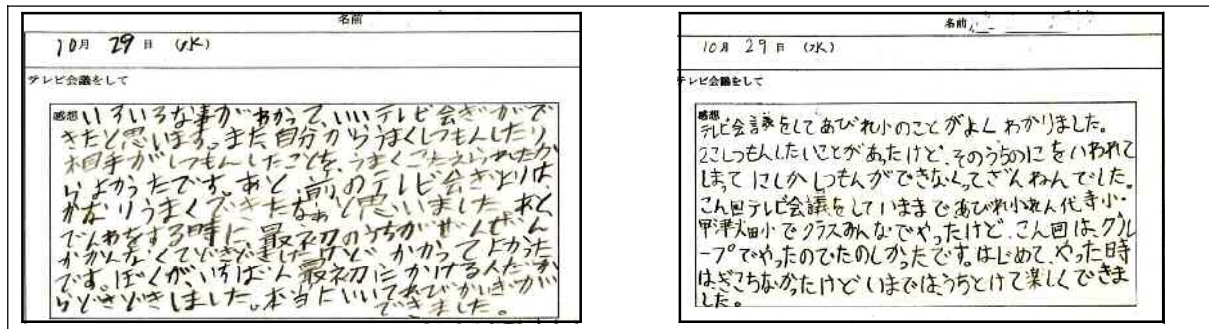 名前
10月 29日 (水)
テレビ会議をして
感想 いろいろな事がわかって、いいテレビ会ぎがで
きたと思います。また自分からうまくしつもんしたり
相手がしつもんしたことを、うまくこたえられたか
らよかったです。あと、前のテレビ会ぎよりは
かなりうまくできたなぁと思いました。あと
でんわをする時に最初のうちがぜんぜん
かかんなくてどきどきしたけど かかってよかった
です。ぼくが、いちばん最初にかける人だか
らどきどきしました。本当にいいてれびかいぎが
できました。
名前
10月 29日 (水)
テレビ会議をして
感想
テレビ会議をしてあびれ小のことがよくわかりました。
2こしつもんしたいことがあったけど、そのうちのにをいわれて
しまって にしかしつもんができなくってざんねんでした。
こん回テレビ会議をしていままであびれ小れん代寺小・
甲津畑小でクラスみんなでやったけど、こん回はグル
ープでやったのでたのしかったです。はじめてやった時
は、ぎこちなかったけどいまでは、うちとけて楽しくできま
した。